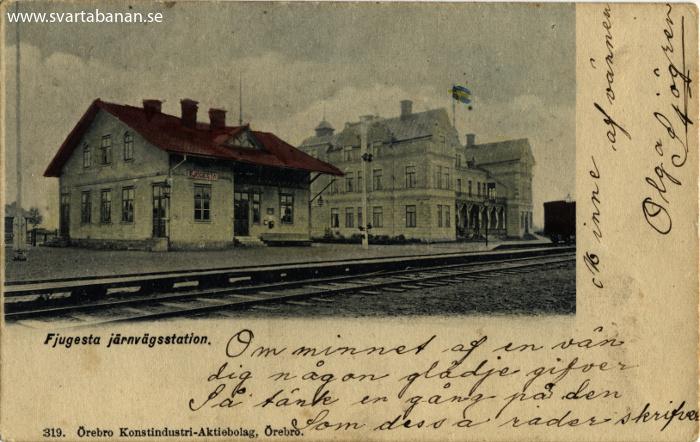 www.svartabanan.se
FJUGESTA
Fjugesta järnvägsstation.
Om minnet af en vän
dig någon glädje gifver
Så tänk en gång på den
Som dessa rader skrifver
Minne af vännen
Olga Sjögren
319. Örebro Konstindustri-Aktiebolag, Örebro.